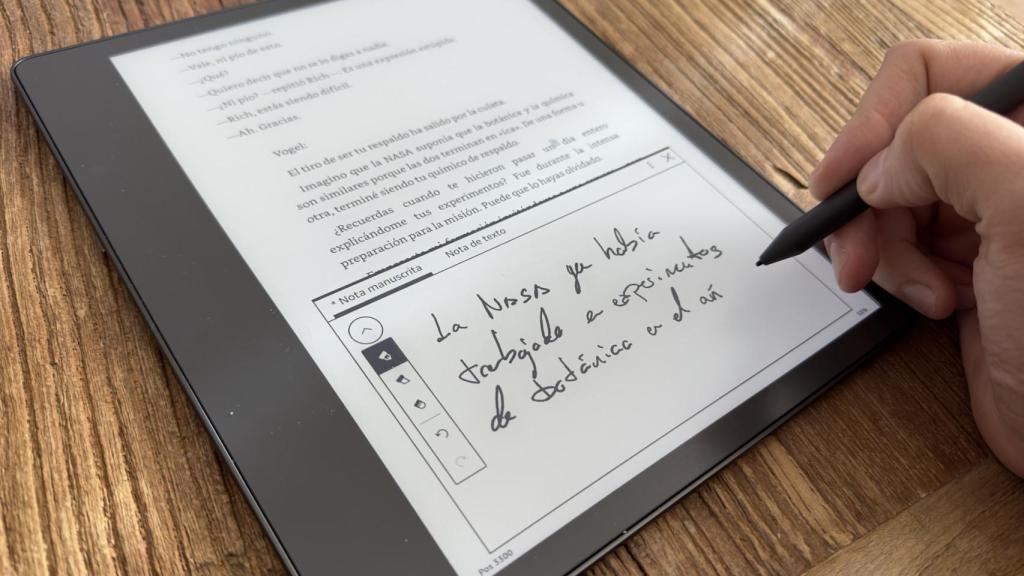 —No tengo ninguno.
—Vale, ni pío de esto.
—¿Qué?
—Quiero decir que no se lo digas a nadie.
—¿Ni pío? —repitió Rich—. Es una expresión estúpida.
—Rich, estás siendo difícil.
—Ah. Gracias.
Vogel:
El tiro de ser tu respaldo ha salido por la culata.
Imagino que la NASA suponía que la botánica y la química
son similares porque las dos terminan en «ica». De una forma u
otra, terminé siendo tu químico de respaldo.
¿Recuerdas cuando te hicieron pasar un día entero
explicándome tus experimentos? Fue durante la intensa
preparación para la misión. Puede que lo hayas olvidado.
* Nota manuscrita
Nota de texto
La NASA ya había
trabajado en experimentos
de botánica en el añ
Pos 3300